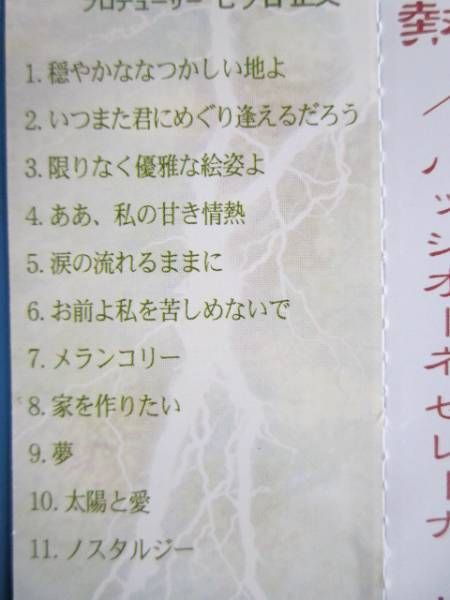 プロデューサー
1. 穏やかななつかしい地よ
2. いつまた君にめぐり逢えるだろう
3. 限りなく優雅な絵姿よ
4. ああ、私の甘き情熱
5. 涙の流れるままに
6. お前よ私を苦しめないで
7. メランコリー
8. 家を作りたい
9. 夢
10. 太陽と愛
11. ノスタルジー
熱
／パッシオーネセレーナ